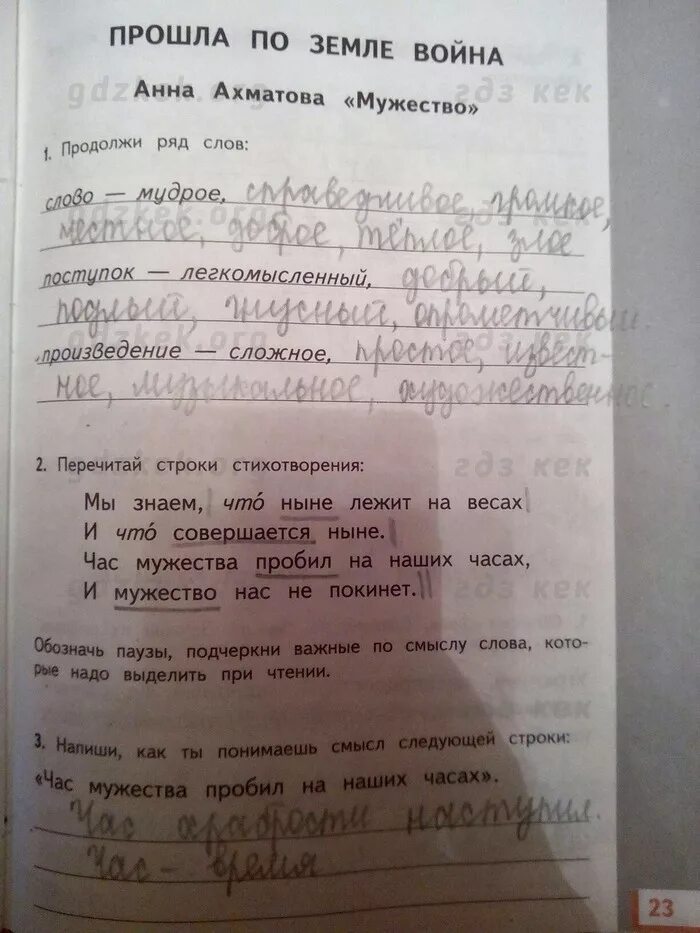 ПРОШЛА ПО ЗЕМЛЕ ВОЙНА
Анна Ахматова «Мужество»
gdzkek.org гдз кек
1. Продолжи ряд слов:
слово — мудрое, справедливое, громкое,
честное, доброе, тёплое, злое
gdzkek.org гдз кек
поступок — легкомысленный, добрый,
подлый, гнусный, опрометчивый.
gdzkek.org гдз кек
произведение — сложное, простое, извест-
ное, музыкальное, художественное.
2. Перечитай строки стихотворения:
гдз кек
Мы знаем, что́ ныне лежит на весах
И что́ совершается ныне.
Час мужества пробил на наших часах,
И мужество нас не покинет.
гдз кек
Обозначь паузы, подчеркни важные по смыслу слова, кото-
рые надо выделить при чтении.
гдз кек
3. Напиши, как ты понимаешь смысл следующей строки:
«Час мужества пробил на наших часах».
Час храбрости наступил.
Час - время
23